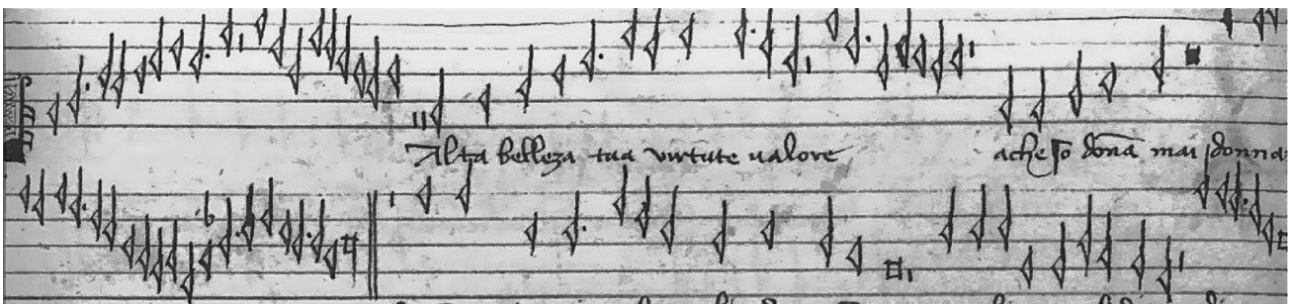 Alta belleza tua virtute ualore
ache io donã mai donna